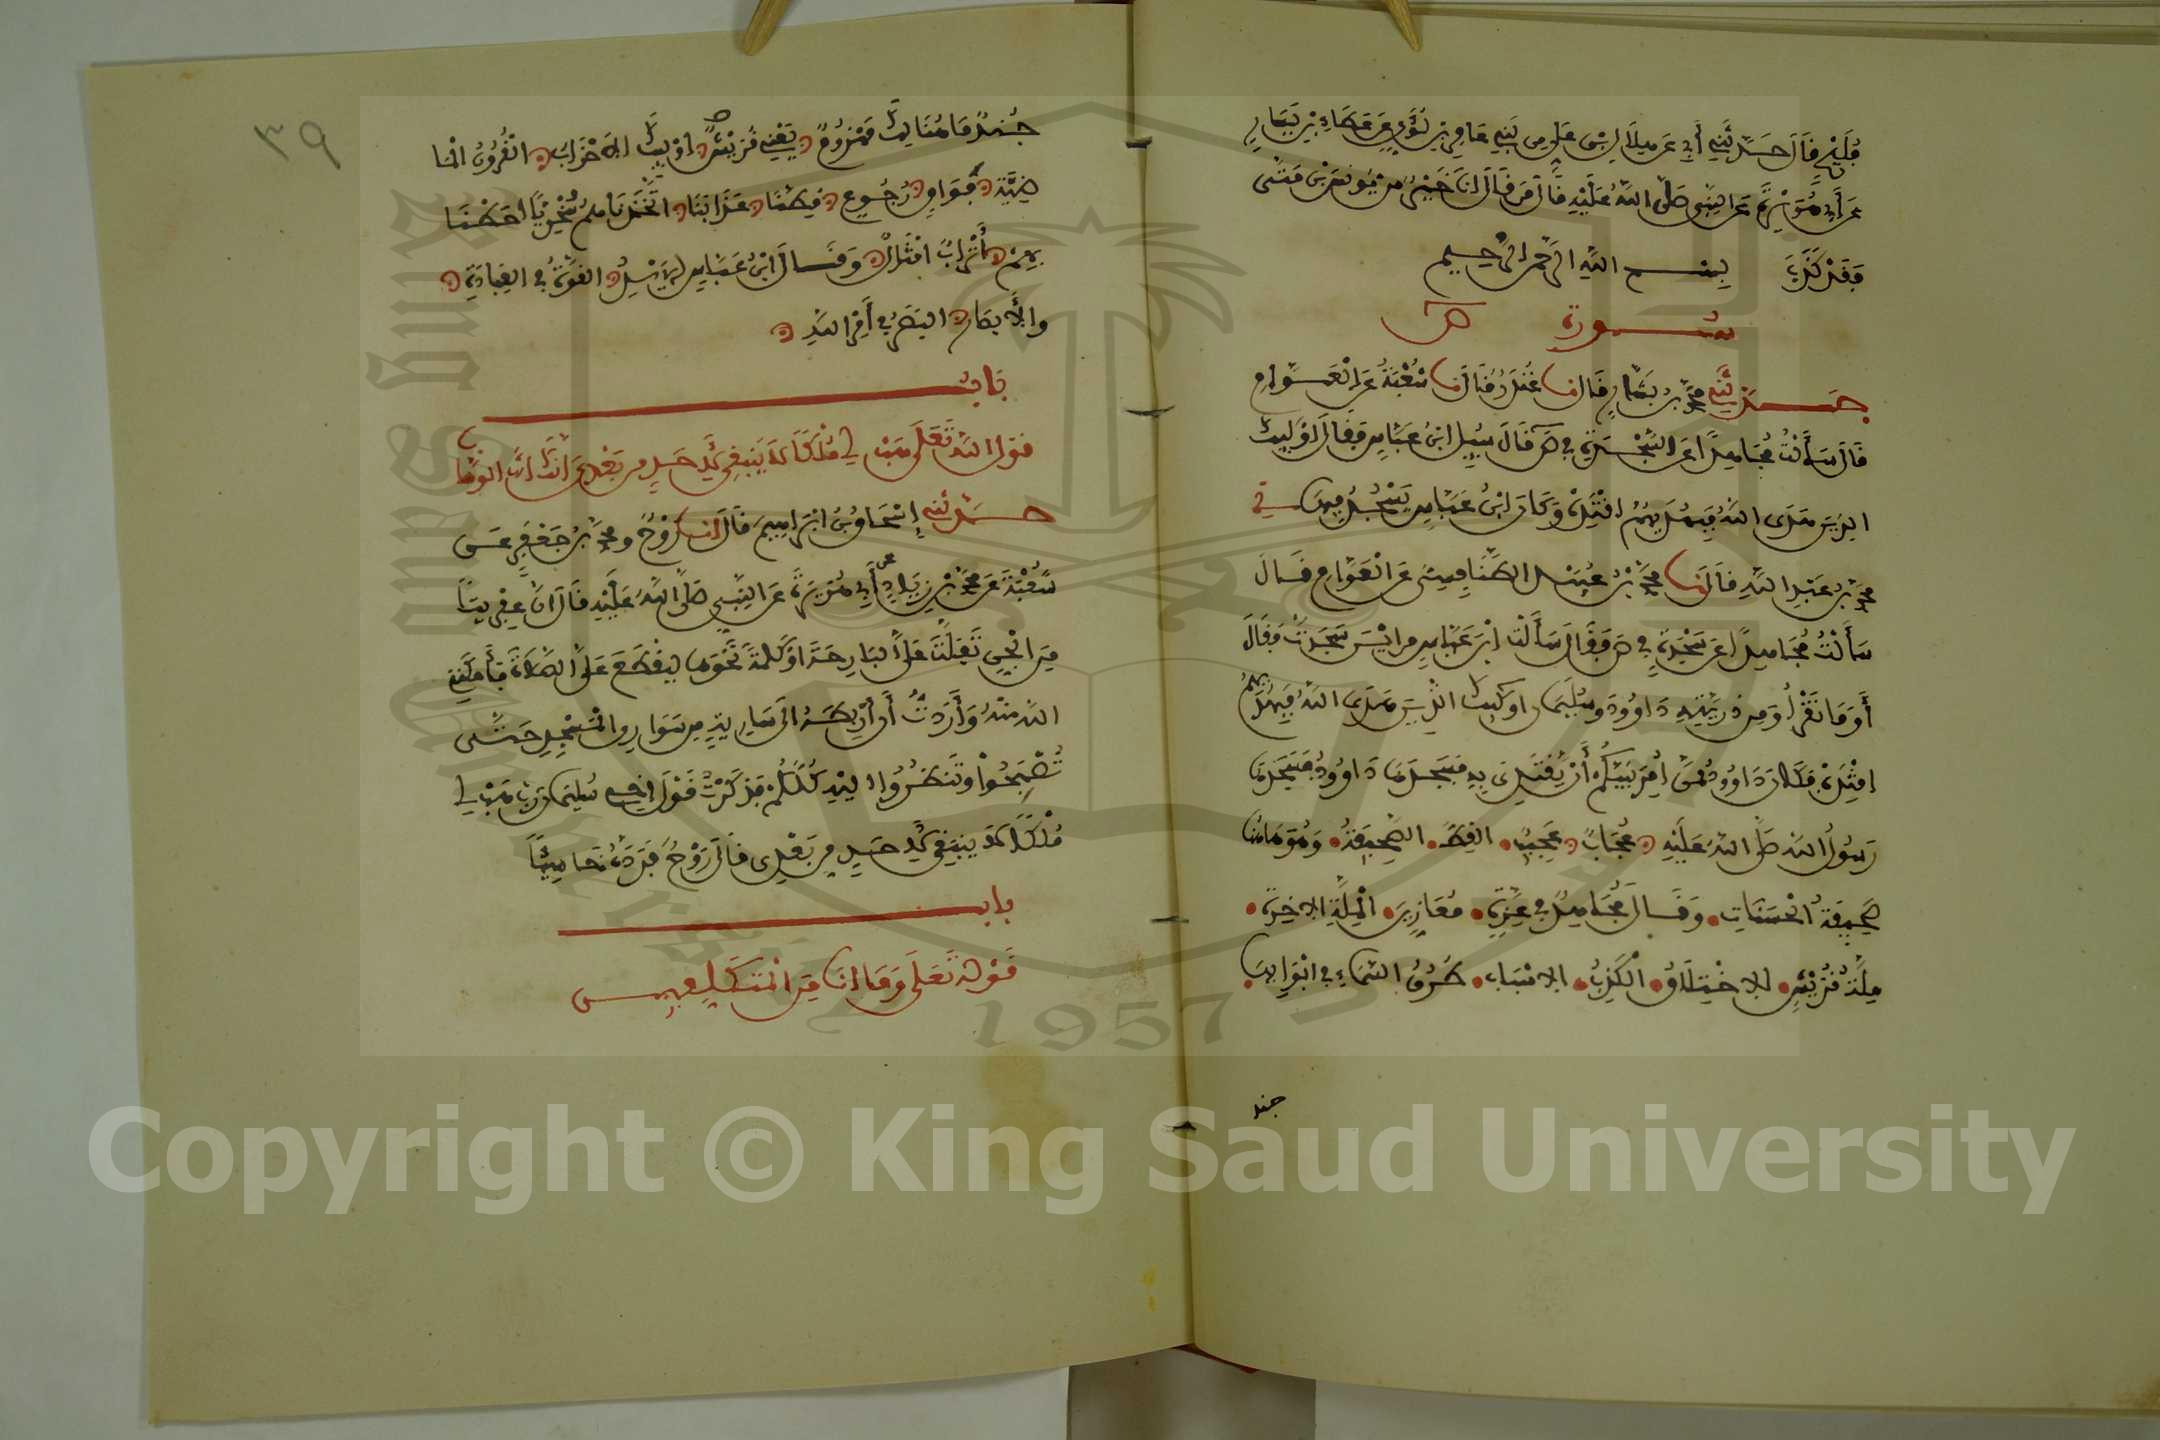 فليح قال حدثني أبي عن هلال بن علي من بني عامر بن لؤي عن عطاء بن يسار
عن أبي هريرة عن النبي صلى الله عليه قال من قال انا خير من يونس بن متى
فقد كذب بسم الله الرحمن الرحيم
سورة ص
حدثني محمد بن بشار قال نا غندر قال نا شعبة عن العوام
قال سألت مجاهدا عن السجدة في ص قال سيل ابن عباس فقال أوليك
الذين هدى الله فبهداهم اقتده وكان ابن عباس يسجد فيها في
محمد بن عبد الله قال نا محمد بن عبيد الطنافسي عن العوام قال
سألت مجاهدا عن سجدة في ص فقال سألت ابن عباس من أين سجدت فقال
أو ما تقرأ ومن ذريته داوود وسليمن اوليك الذين هدى الله فبهداهم
اقتده فكان داوود ممن أمر نبيكم أن يقتدي به فسجدها داوود فسجدها
رسول الله صلى الله عليه عجاب عجيب القط الصحيفة وهو هاهنا
صحيفة الحسنات وقال مجاهد في عزة معازين الملة الاخرة
ملة قريش الاختلاق الكذب الاسباب طرق السماء في ابوابها
جند
٣٩
جند ما هنالك مهزوم يعني قريش اوليك الاحزاب القرون الما
ضية فواق رجوع قطنا عذابنا اتخذناهم سخريا أحطنا
بهم أتراب امثال وقال ابن عباس الايد القوة في العبادة
والابصار البصر في أمر الله
باب
قول الله تعلى هب لي ملكا لا ينبغي لأحد من بعدي انك أنت الوهاب
حدثني إسحاق بن ابراهيم قال نا روح ومحمد بن جعفر عن
شعبة عن محمد بن زياد عن أبي هريرة عن النبي صلى الله عليه قال ان عفريتا
من الجن تفلت علي البارحة أو كلمة نحوها ليقطع علي الصلاة فأمكنني
الله منه وأردت أن أربطه الى سارية من سواري المسجد حتى
تصبحوا وتنظروا اليه كلكم فذكرت قول اخي سليمن رب هب لي
ملكا لا ينبغي لأحد من بعدي قال روح فرده خاسئا
باب
قوله تعلى وما انا من المتكلفين
Copyright © King Saud University
1957